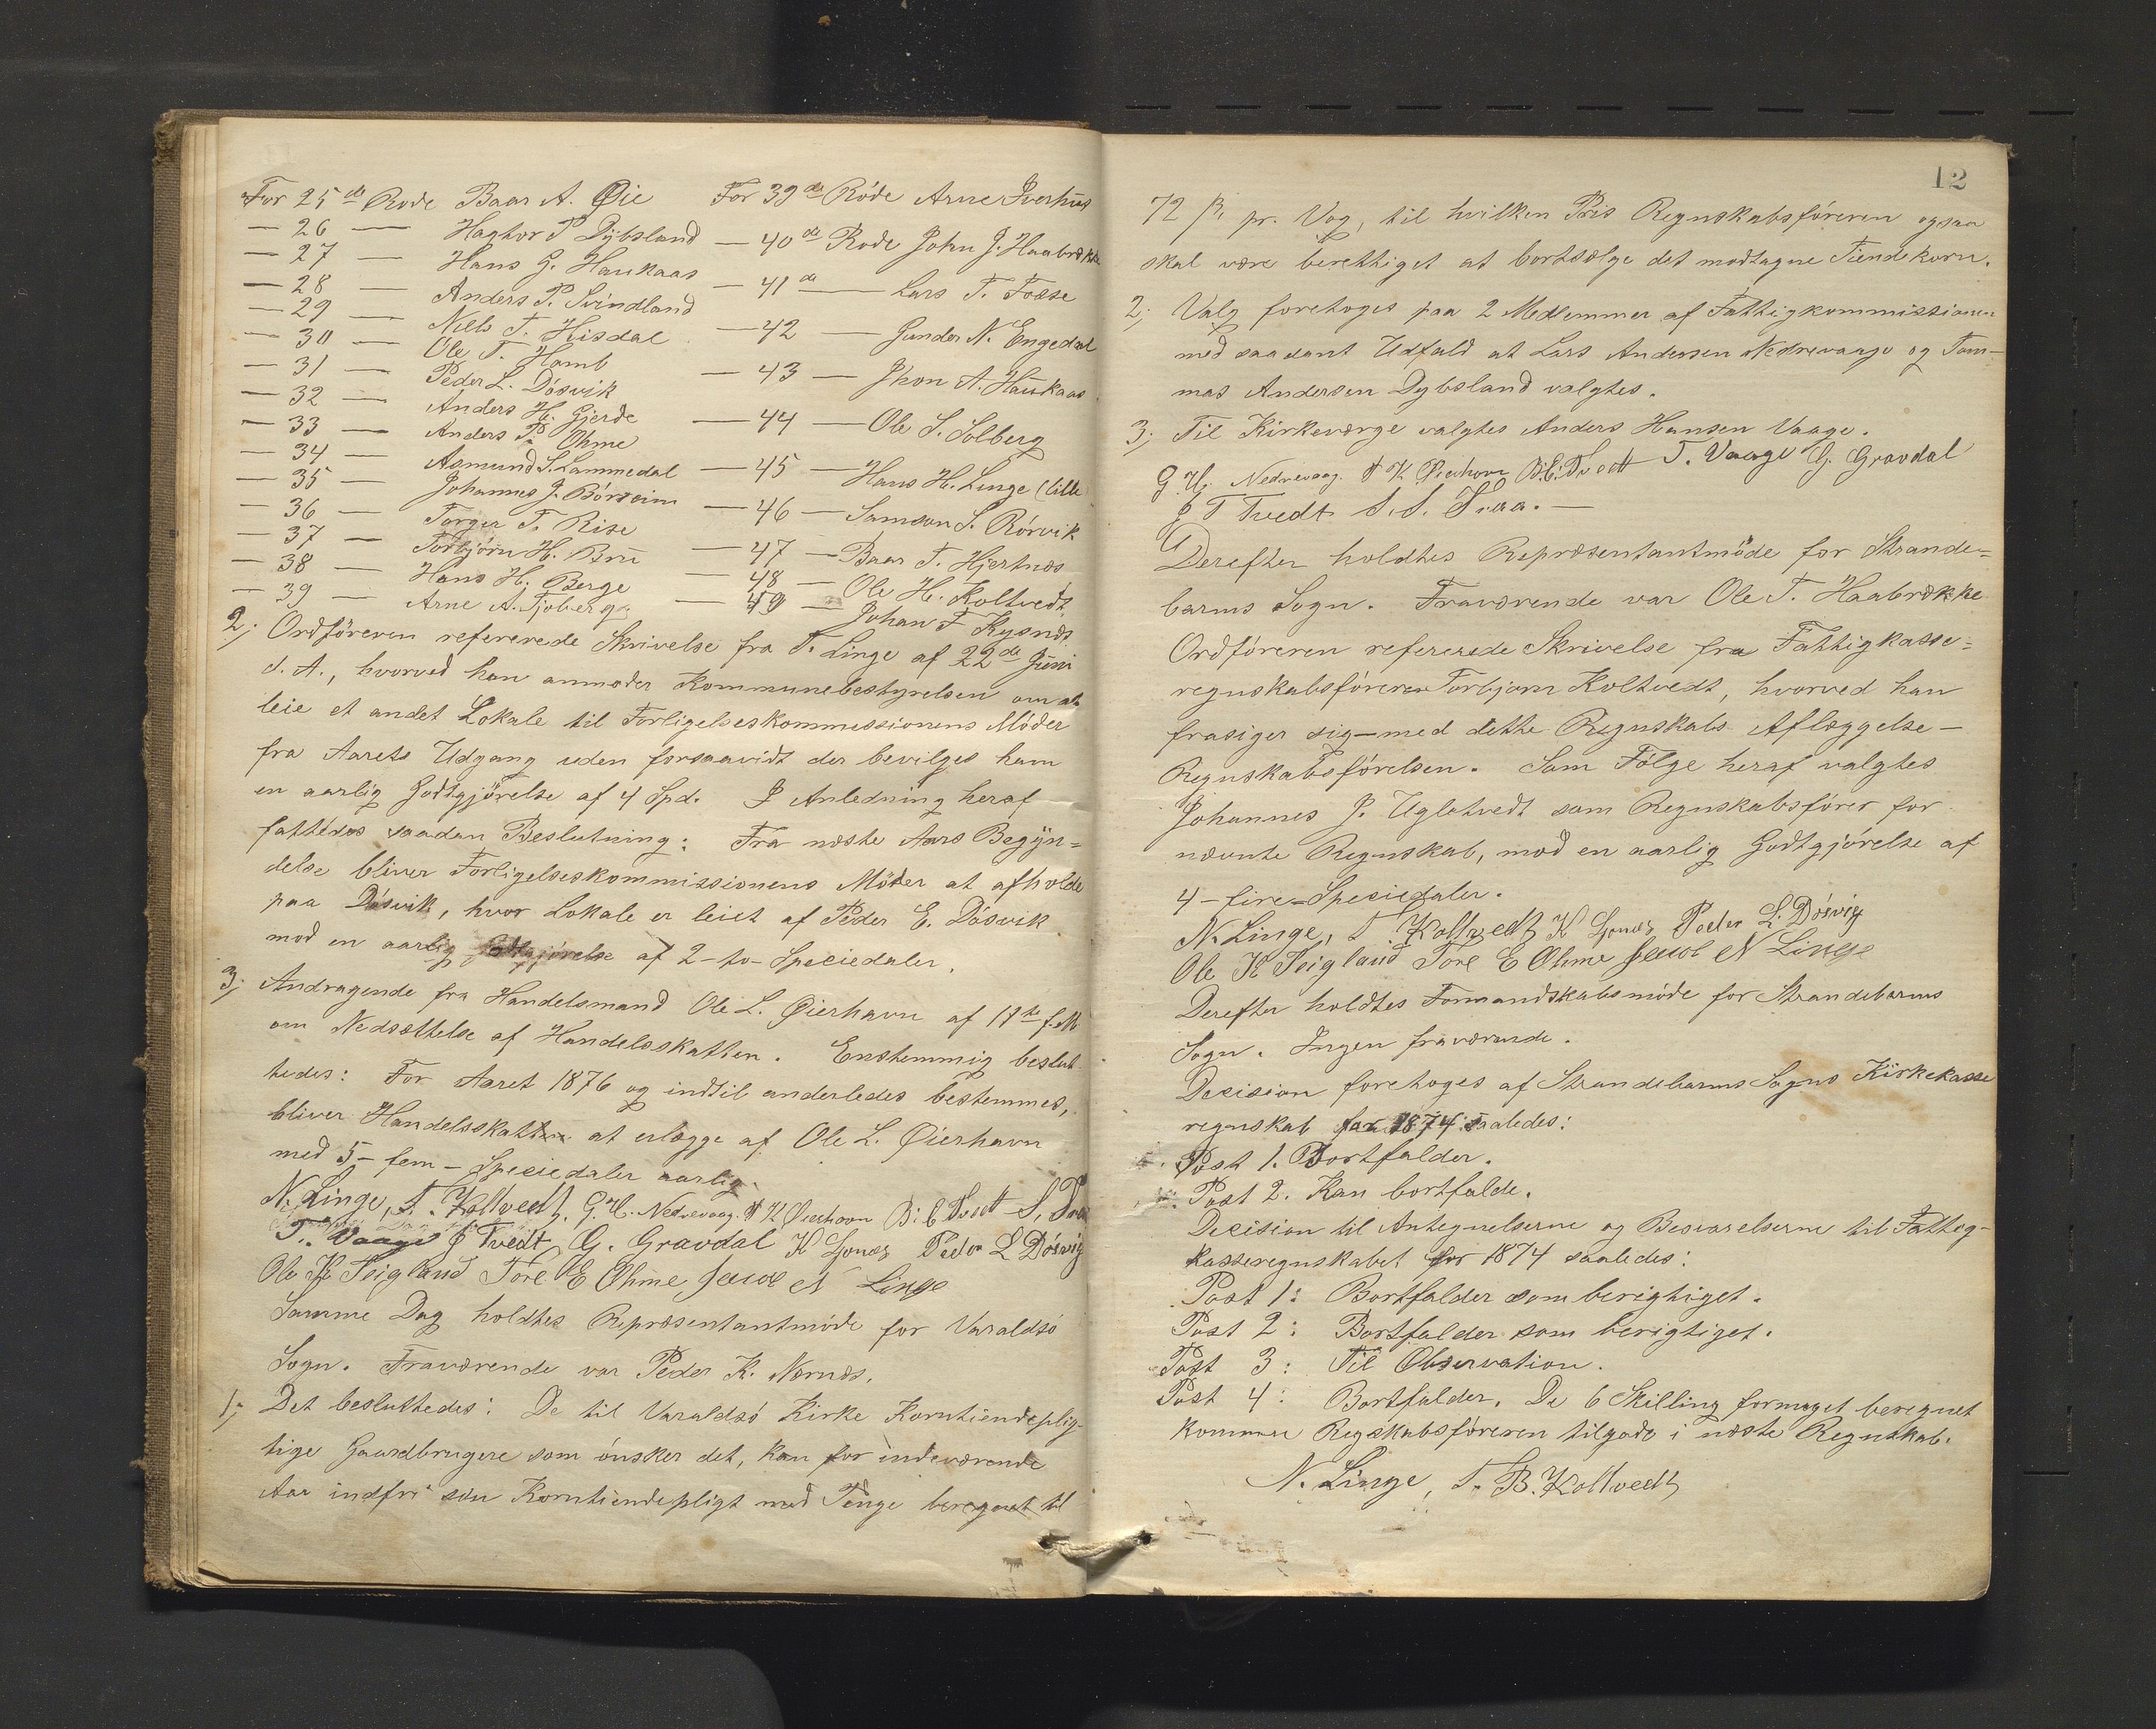 For 25de Rode Baar A. Øie
— 26 — Haktor P Dÿbsland
— 27 — Hans G. Haukaas
— 28 — Anders P. Svindland
— 29 — Niels T. Hisdal
— 30 — Ole T. Homb
— 31 — Peder L. Dósvik
— 32 — Anders H. Gjerde
— 33 — Anders P. Ohme
— 34 — Asmund S. Lammedal
— 35 — Johannes J. Bórseim
— 36 — Torger T. Rise
— 37 — Torbjórn H. Bru
— 38 — Hans H. Berge
— 39 — Arne A. Tjoberg
For 39de Róde Arne Iverhus
— 40de Rode John J. Haabrække
— 41de — Lars T. Fosse
— 42 — Gunder N. Engedal
— 43 — Jhon A. Haukaas
— 44 — Ole S. Solberg
— 45 — Hans H. Linge (lille
— 46 — Samson S. Rórvik
— 47 — Baar T. Hjertnæs
— 48 — Ole H. Koltvedt
— 49 — Johan T Kysnæs
2; Ordfóreren refererede Skrivelse fra T. Linge af 22de Juni
d. A., hvorved han anmoder Kommunebestyrelsen om at
leie et andet Lokale til Forligelseskommissionens Móder
fra Aarets Udgang uden forsaavidt der bevilges ham
en aarlig Godtgjórelse af 4 Spd. I Anledning heraf
fattedes saadan Beslutning: Fra næste Aars Begyn=
delse bliver Forligelseskommissionens Móder at afholde
paa Dósvik, hvor Lokale er leiet af Peder E. Dósvik
mod en aarlig Godtgjórelse af 2-to-Speciedaler.
3; Andragende fra Handelsmand Ole L. Øierhavn af 17de f. M
om Nedsættelse af Handelsskatten. Enstemmig beslut
tedes: For Aaret 1876 og indtil anderledes bestemmes,
bliver Handelsskatten at erlægge af Ole L. Øierhavn
med 5-fem-Speciedaler aarlig.
N. Linge, T. Koltvedt, G. H. Nedrevaag. T K Øierhavn B. E. Tvedt S. Traa
T. Vaage J Tvedt G. Gravdal K Ljones Peder L Dósvig
Ole K Teigland Tore E Ohme Jacob N Linge
Samme Dag holdtes Repræsentantmóde for Varaldsó
Sogn. Fraværende var Peder K. Nærnæs.
1; Det besluttedes: De til Varaldsó Kirke Korntiendeplig-
tige Gaardbrugere som ónsker det, kan for indeværende
Aar indfri sin Korntiendepligt med Penge beregnet til
12
72 ß pr. Vog, til hvilken Pris Regnskabsfóreren ogsaa
skal være berettiget at bortsælge det modtagne Tiendekorn.
2; Valg foretoges paa 2 Medlemmer af Fattigkommissionen
med saadant Udfald at Lars Andersen Nedrevaage og Tom-
mas Andersen Dybsland valgtes.
3; Til Kirkeværge valgtes Anders Hansen Vaage.
G. H. Nedrevaag. T K Øierhavn B. E. Tvedt T. Vaage G. Gravdal
J T Tvedt S. S. Traa. —
Derefter holdtes Repræsentantmóde for Strande=
barms Sogn. Fraværende var Ole T. Haabrække
Ordfóreren refererede Skrivelse fra Fattigkasse=
regnskabsfóreren Torbjorn Koltvedt, hvorved han
frasiger sig — med dette Regnskabs Aflæggelse —
Regnskabsfórelsen. Som Fólge heraf valgtes
Johannes J. Uglatvedt som Regnskabsfórer for
nævnte Regnskab, mod en aarlig Godtgjórelse af
4-fire-Speciedaler.
N. Linge, T Koltvedt K Ljones Peder L. Dósvig
Ole K Teigland Tore E Ohme Jacob N Linge
Derefter holdtes Formandskabsmóde for Strandebarms
Sogn. Ingen fraværende.
Decision foretoges af Strandebarms Sogns Kirkekasse
regnskab for 1874 saaledes:
Post 1. Bortfalder.
Post 2. Kan bortfalde.
Decision til Antegnelserne og Besvarelserne til Fattig-
kasseregnskabet for 1874 saaledes:
Post 1: Bortfalder som berigtiget.
Post 2: Bortfalder som berigtiget.
Post 3: Til Observation.
Post 4: Bortfalder. De 6 Skilling formeget beregnet
kommer Regskabsfóreren tilgode i næste Regnskab.
N. Linge, T. B. Koltvedt